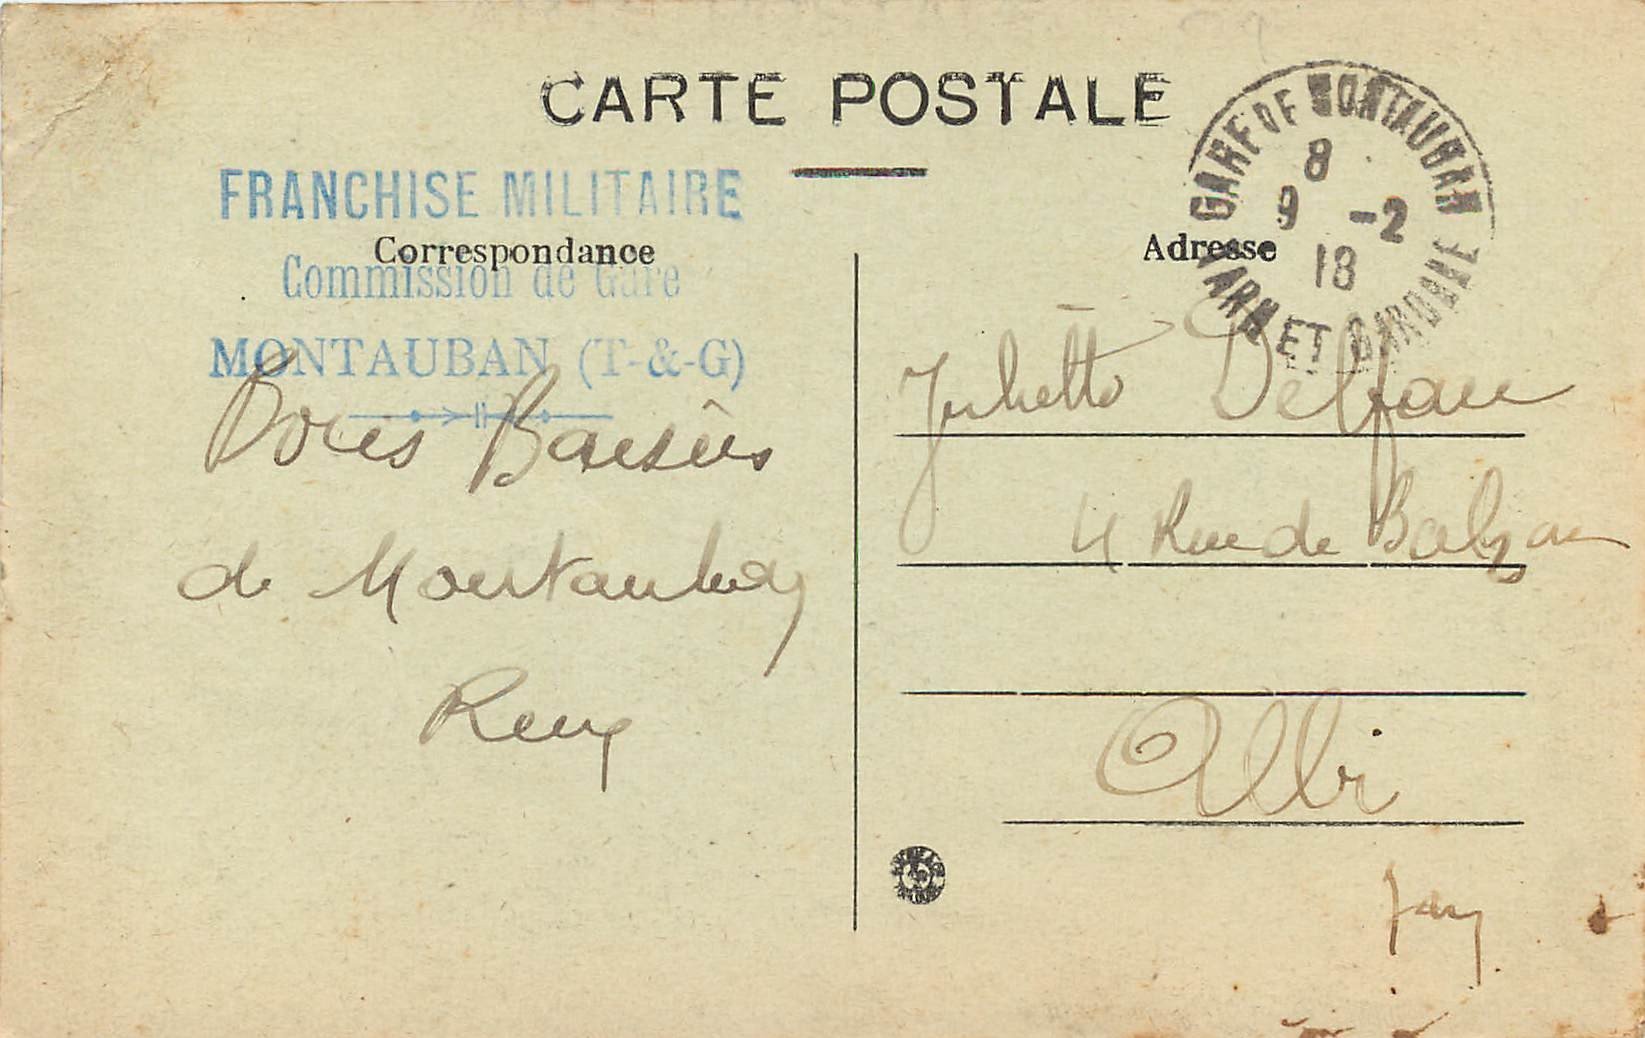 CARTE POSTALE
FRANCHISE MILITAIRE
Correspondance
Commission de Gare
MONTAUBAN (T-&-G)
Bons Baisers
de Montauban
Remy
Adresse
GARE DE MONTAUBAN
8
9 -2
18
TARN ET GARONNE
Juliette Delfau
4 Rue de Balzac
Albi
Tarn